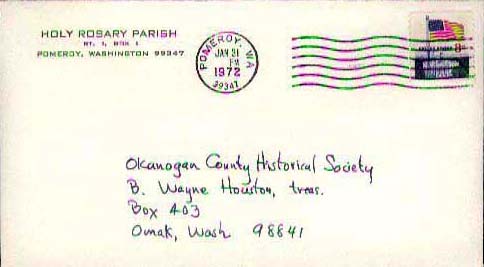 HOLY ROSARY PARISH
RT. 1, BOX 1
POMEROY, WASHINGTON 99347
POMEROY, WA
JAN 31
PM
1972
99347
Okanogan County Historical Society
B. Wayne Houston, treas.
Box 403
Omak, Wash 98841